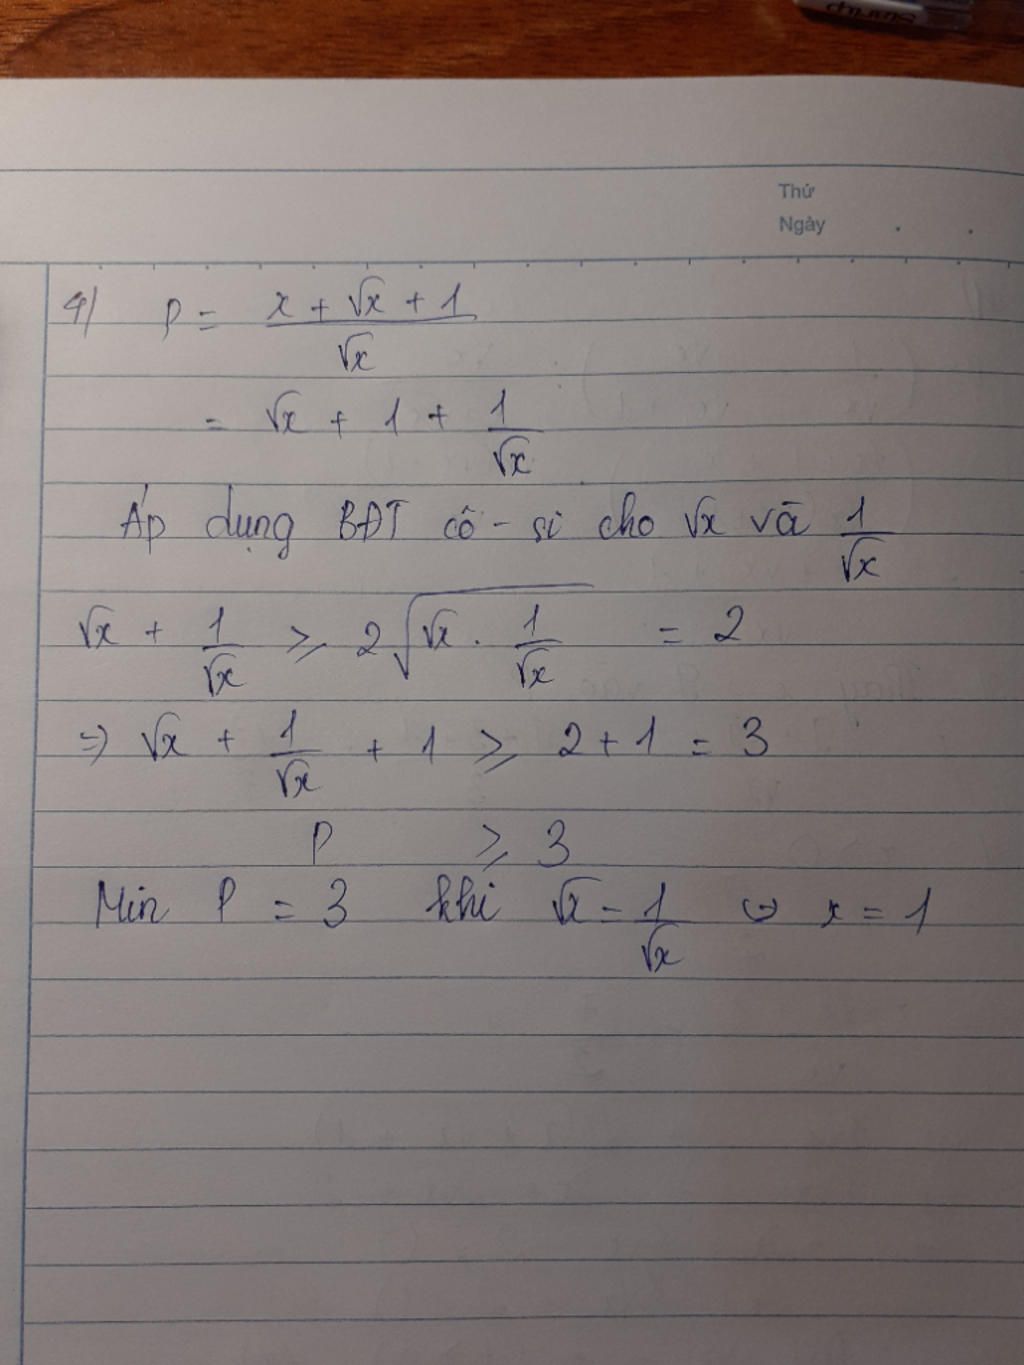 Thứ
Ngày
4) P = \frac{x + \sqrt{x} + 1}{\sqrt{x}}
= \sqrt{x} + 1 + \frac{1}{\sqrt{x}}
Áp dụng BĐT cô-si cho \sqrt{x} và \frac{1}{\sqrt{x}}
\sqrt{x} + \frac{1}{\sqrt{x}} ≥ 2\sqrt{\sqrt{x} . \frac{1}{\sqrt{x}}} = 2
=> \sqrt{x} + \frac{1}{\sqrt{x}} + 1 ≥ 2 + 1 = 3
P ≥ 3
Min P = 3 khi \sqrt{x} = \frac{1}{\sqrt{x}} ⇔ x = 1